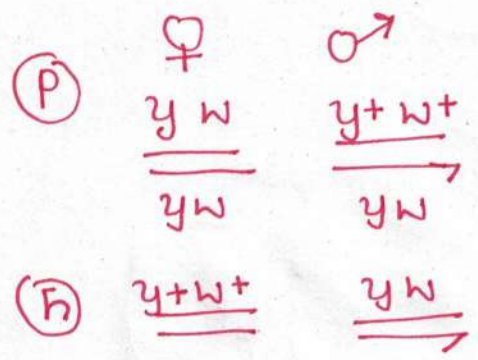 ♀ ♂
P
y w y+ w+
yw yw
F1 y+w+ yw